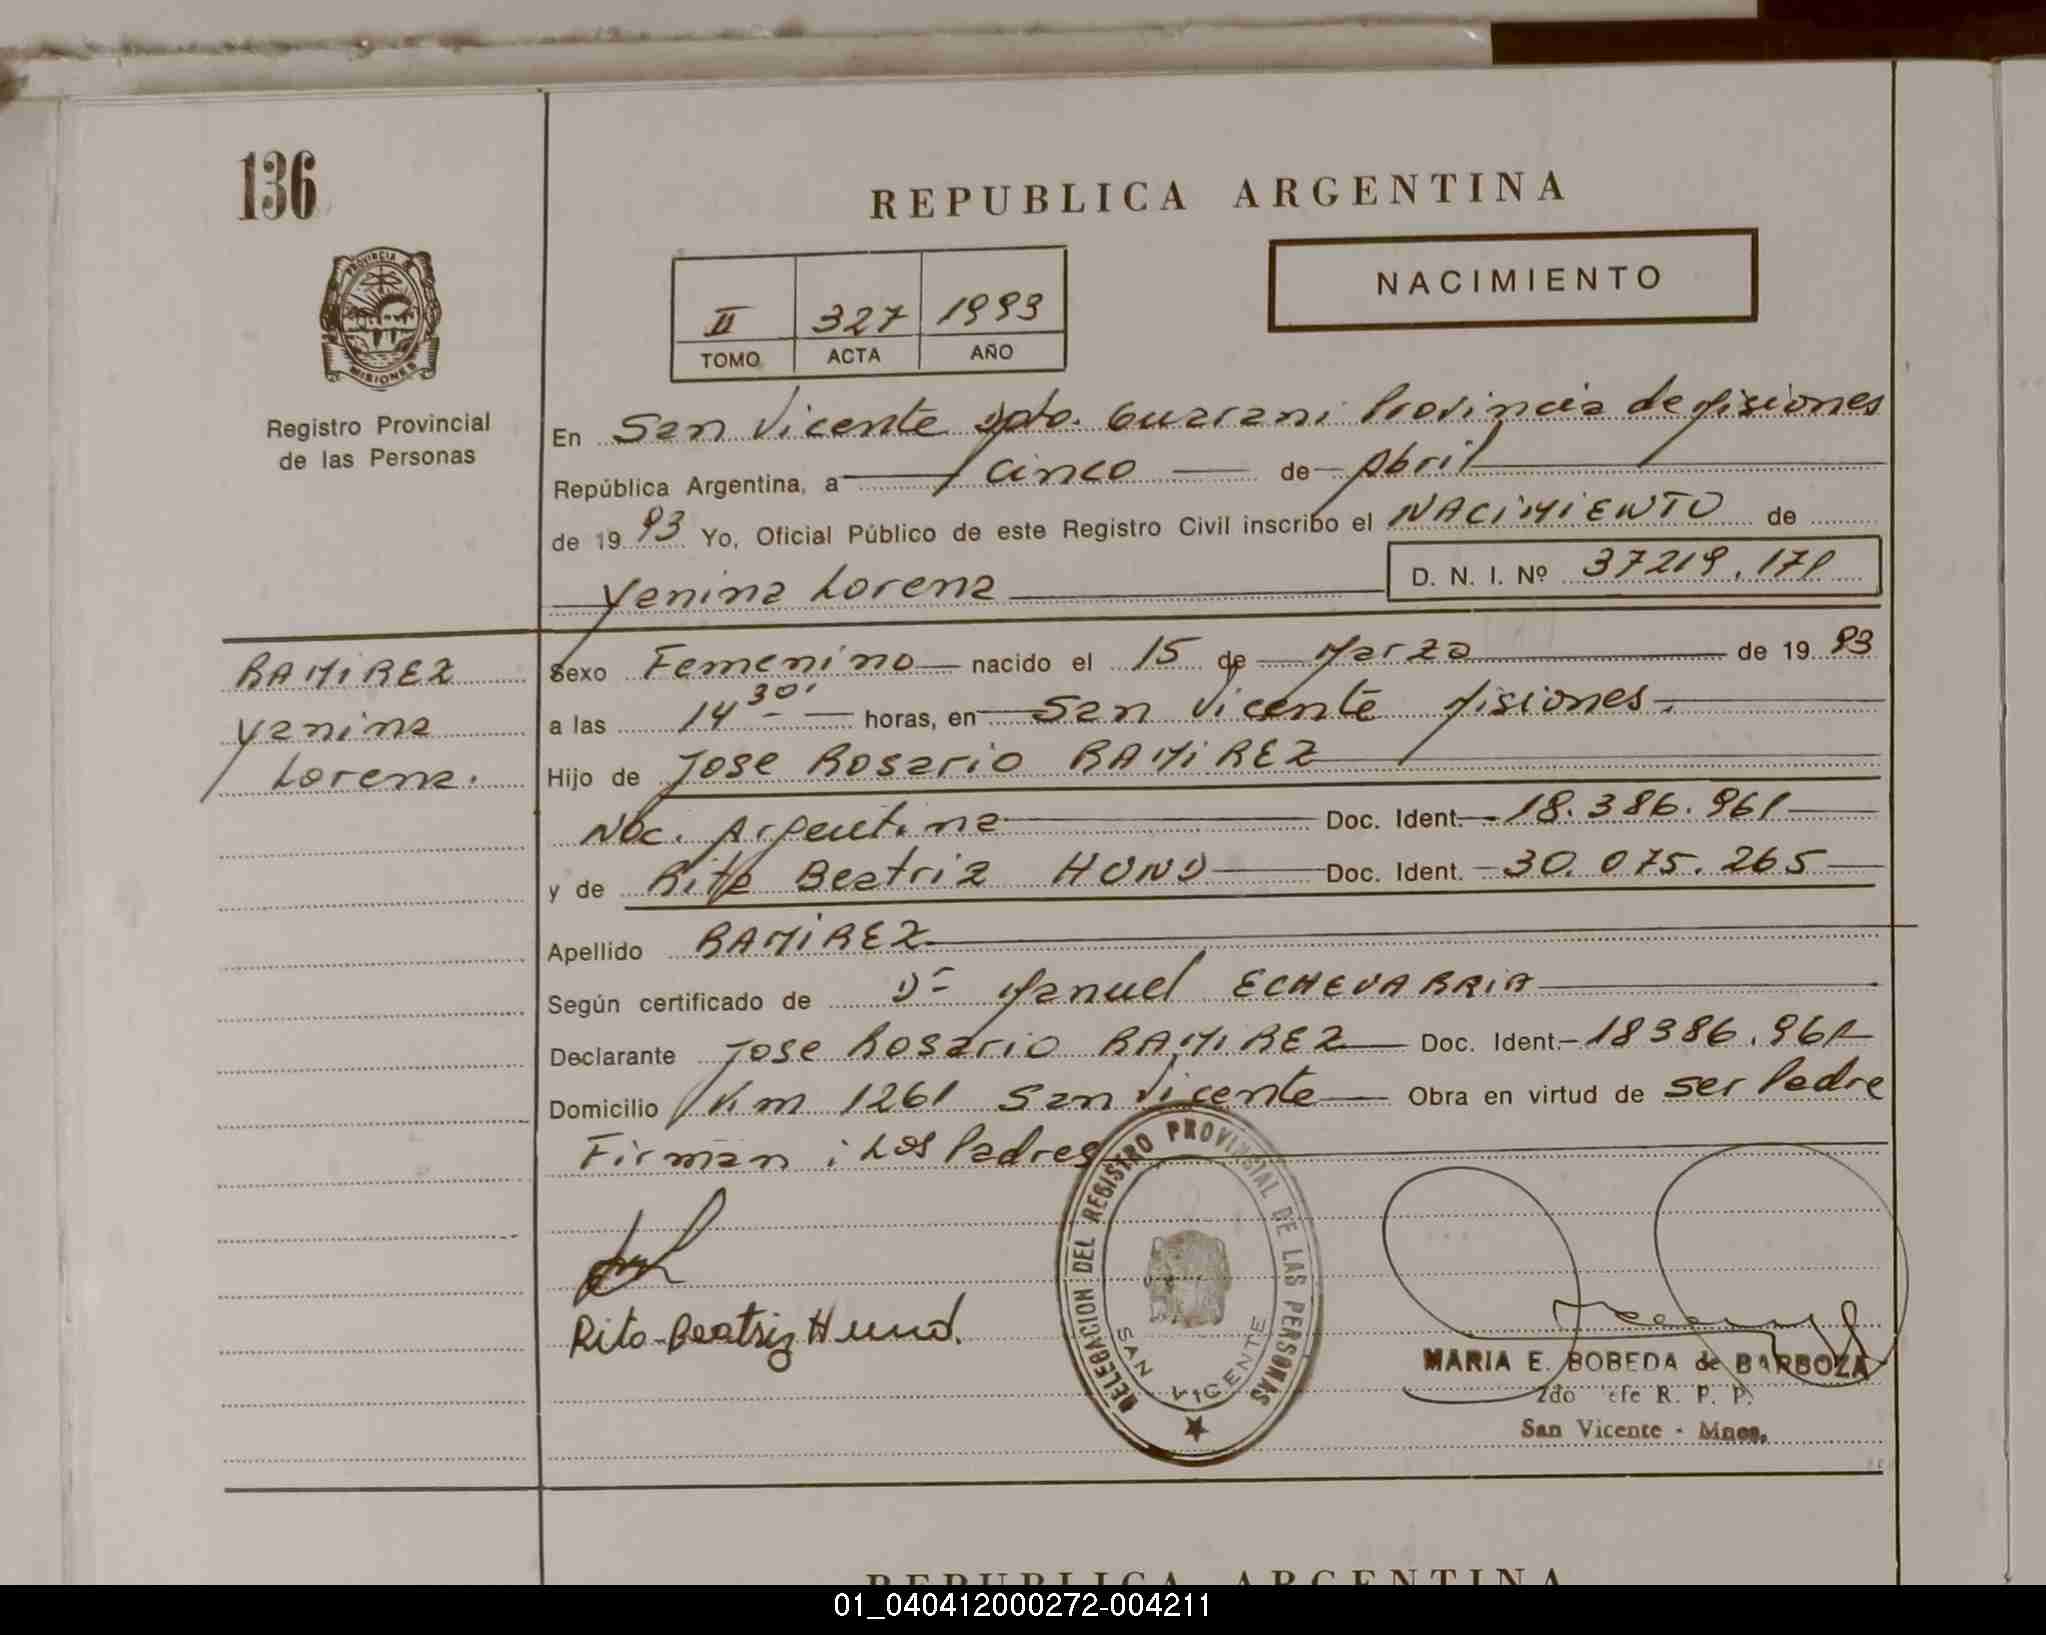 136
REPUBLICA ARGENTINA
PROVINCIA
MISIONES
Registro Provincial
de las Personas
II 327 1993
TOMO ACTA AÑO
NACIMIENTO
En San Vicente Dpto. Guarani Provincia de Misiones
República Argentina, a cinco de Abril
de 19 93 Yo, Oficial Público de este Registro Civil inscribo el NACIMIENTO de
Yanina Lorena D. N. I. Nº 37219.171
RAMIREZ
Yanina
Lorena.
Sexo Femenino nacido el 15 de Marzo de 19 93
a las 14 30' horas, en San Vicente Misiones.
Hijo de Jose Rosario RAMIREZ
Nac. Argentina Doc. Ident. 18.386.961
y de Rita Beatriz HUND Doc. Ident. 30.075.265
Apellido RAMIREZ
Según certificado de Dr Manuel ECHEVARRIA
Declarante Jose Rosario RAMIREZ Doc. Ident. 18386.961
Domicilio Km 1261 San Vicente Obra en virtud de ser Padre
Firman: Los Padres
DELEGACION DEL REGISTRO PROVINCIAL DE LAS PERSONAS
SAN VICENTE
Rita Beatriz Hund.
MARIA E. BOBEDA de BARBOZA
2do R. P. P.
San Vicente - Mnes.
REPUBLICA ARGENTINA
01_040412000272-004211